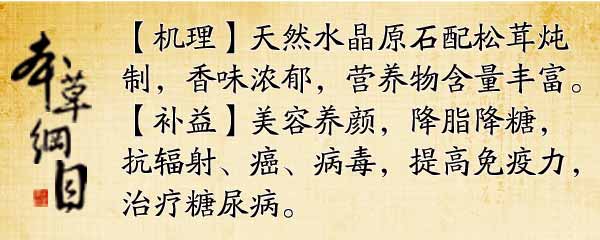 本草綱目
【机理】天然水晶原石配松茸炖
制，香味浓郁，营养物含量丰富。
【补益】美容养颜，降脂降糖，
抗辐射、癌、病毒，提高免疫力，
治疗糖尿病。